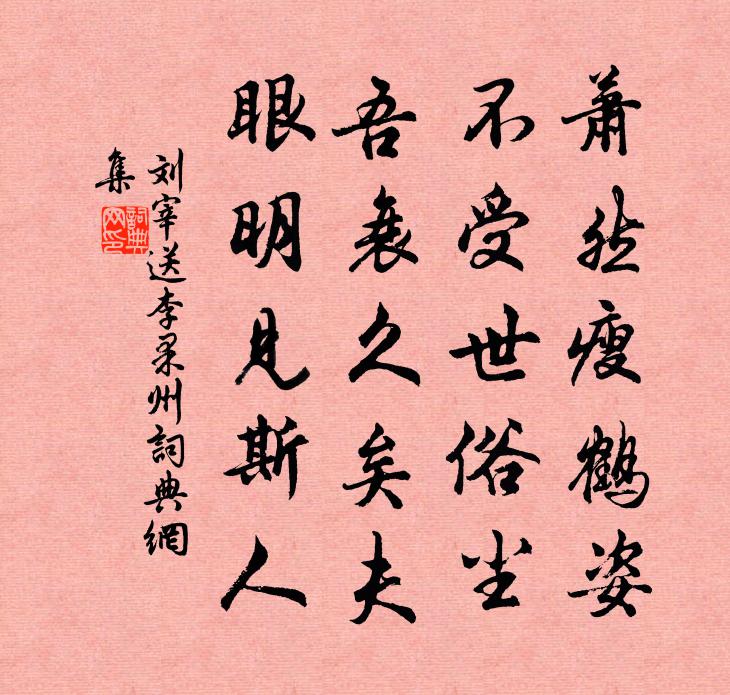 萧然瘦鹤姿
不受世俗尘
吾衰久矣夫
眼明见斯人
刘宰送李果州詞典網
集
詞典
网印